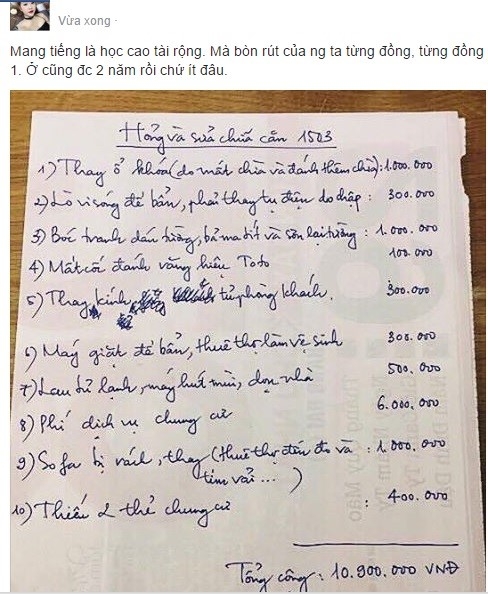 Vừa xong ·
Mang tiếng là học cao tài rộng. Mà bòn rút của ng ta từng đồng, từng đồng
1. Ở cũng đc 2 năm rồi chứ ít đâu.
Hỏng và sửa chữa căn 1503
1) Thay ổ khóa (do mất chìa và đánh thêm chìa): 1.000.000
2) Lò vi sóng để bẩn, phải thay tụ điện do chập : 300.000
3) Bóc tranh dán tường, bả ma tít và sơn lại tường : 1.000.000
4) Mất cốc đánh răng hiệu Toto 100.000
5) Thay kính tủ phòng khách. 300.000
6) Máy giặt để bẩn, thuê thợ làm vệ sinh 300.000
7) Lau tủ lạnh, máy hút mùi, dọn nhà 500.000
8) Phí dịch vụ chung cư 6.000.000
9) Sofa bị rách, thay (thuê thợ đến đo và : 1.000.000
tìm vải ... )
10) Thiếu 2 thẻ chung cư : 400.000
Tổng cộng : 10.900.000 VNĐ